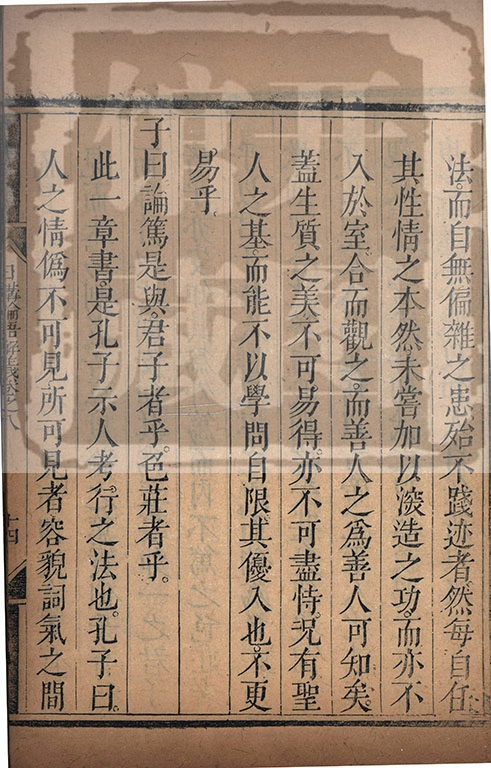 法。而自無偏雜之患。殆不踐迹者。然每自任
其性情之本然。未嘗加以深造之功。而亦不
入於室。合而觀之。而善人之爲善人可知矣。
蓋生質之美。不可易得。亦不可盡恃。况有聖
人之基。而能不以學問自限。其優入也。不更
易乎。
子曰論篤是與。君子者乎。色莊者乎。
此一章書。是孔子示人考行之法也。孔子曰。
人之情僞不可見。所可見者。容貌詞氣之間
日講論語解義卷之八
十四